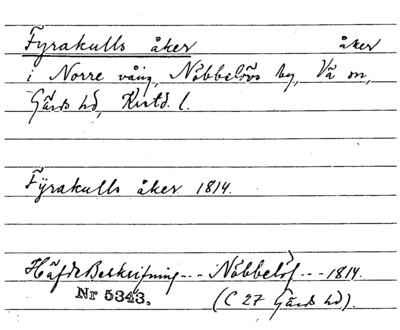 Fyrakulls åker åker
i Norre vång, Nöbbelövs by, Vä sn,
Gärds hd, Kristd. l.
Fÿrakulls åker 1814.
HäfdeBeskrifning --- Nöbbelöf --- 1814.
Nr 5343. (C 27 Gärds hd).